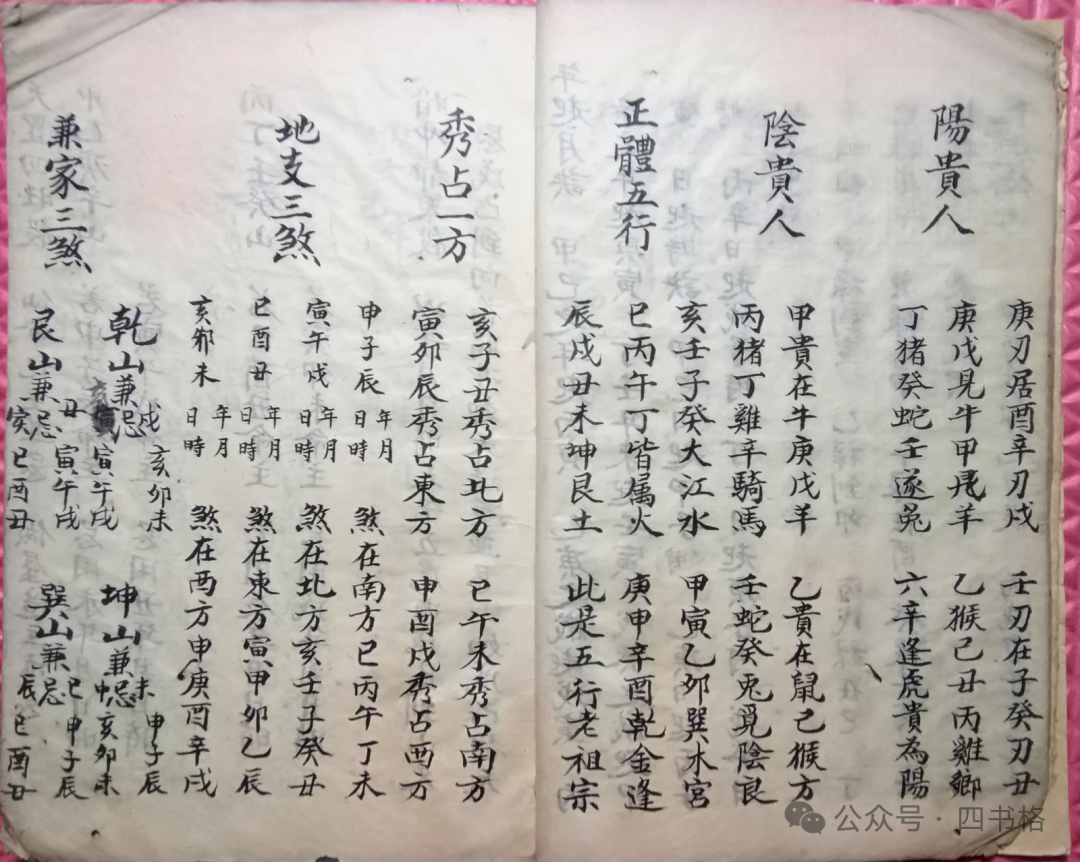 庚刃居酉辛刃戌 壬刃在子癸刃丑
陽貴人
庚戊見牛甲飛羊 乙猴己丑丙雞鄉
丁猪癸蛇壬遂兔 六辛逢虎貴為陽
陰貴人
甲貴在牛庚戊羊 乙貴在鼠己猴方
丙猪丁雞辛騎馬 壬蛇癸兔覓陰良
正體五行
亥壬子癸大江水 甲寅乙卯巽木宮
巳丙午丁皆属火 庚申辛酉乾金逢
辰戍丑未坤艮土 此是五行老祖宗
秀占一方
亥子丑秀占北方 巳午未秀占南方
寅卯辰秀占東方 申酉戍秀占西方
地支三煞
申子辰年月日時 煞在南方巳丙午丁未
寅午戌年月日時 煞在北方亥壬子癸丑
巳酉丑年月日時 煞在東方寅甲卯乙辰
亥卯未年月日時 煞在西方申庚酉辛戌
兼家三煞
乾山兼忌 戍亥卯未 亥寅午戌
坤山兼忌 未申子辰 申亥卯未
艮山兼忌 丑寅午戌 寅巳酉丑
巽山兼忌 巳申子辰 辰巳酉丑
公众号·四书格